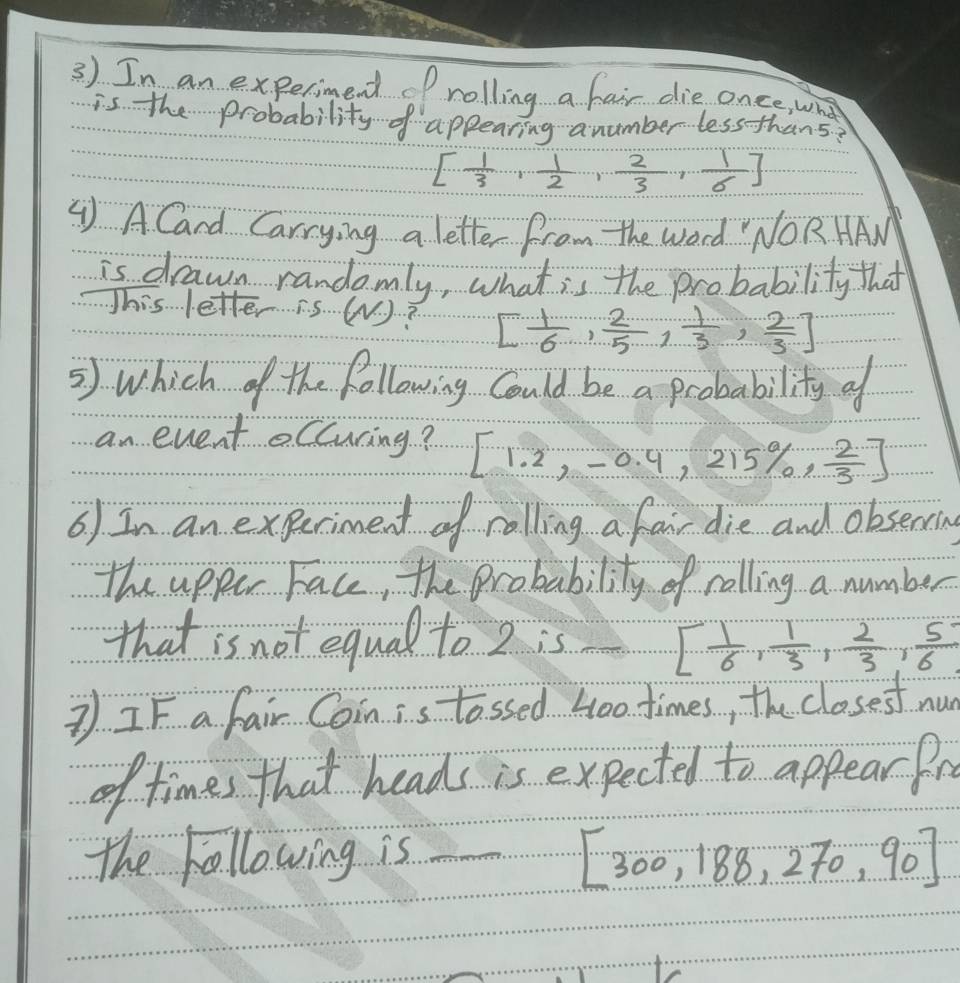 3) In an experiment of rolling a fair die once, wha
is the probability of appearing a number less than 5?
[ 1/3 , 1/2 , 2/3 , 1/6 ]
4) A Card Carrying a letter from the word "NORHAN"
is drawn randomly, what is the probability that
This letter is (N)?
[ 1/6 , 2/5 , 1/3 , 2/3 ]
5) Which of the following Could be a probability of
an event occuring? [ 1.2 , -0.4 , 215% , 2/3 ]
6) In an experiment of rolling a fair die and observing
the upper Face, the probability of rolling a number
that is not equal to 2 is — [ 1/6 , 1/3 , 2/3 , 5/6
7) IF a fair Coin is tossed 400 times, the closest num
of times that heads is expected to appear fro
the Following is — [ 300 , 188 , 270 , 90 ]
Mr. Milad